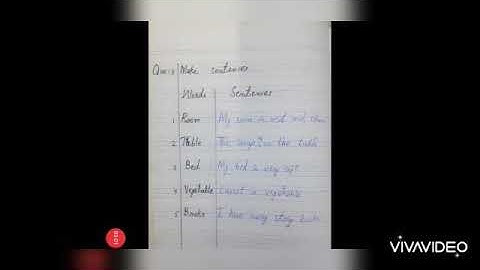 Make sentences
Words Sentences
1 Room My room is neat and clean
2 Table The on the table
3 Bed My bed is very soft
4 Vegetable Carrot is vegetable
5 Books I have many story books
VIVAVIDEO